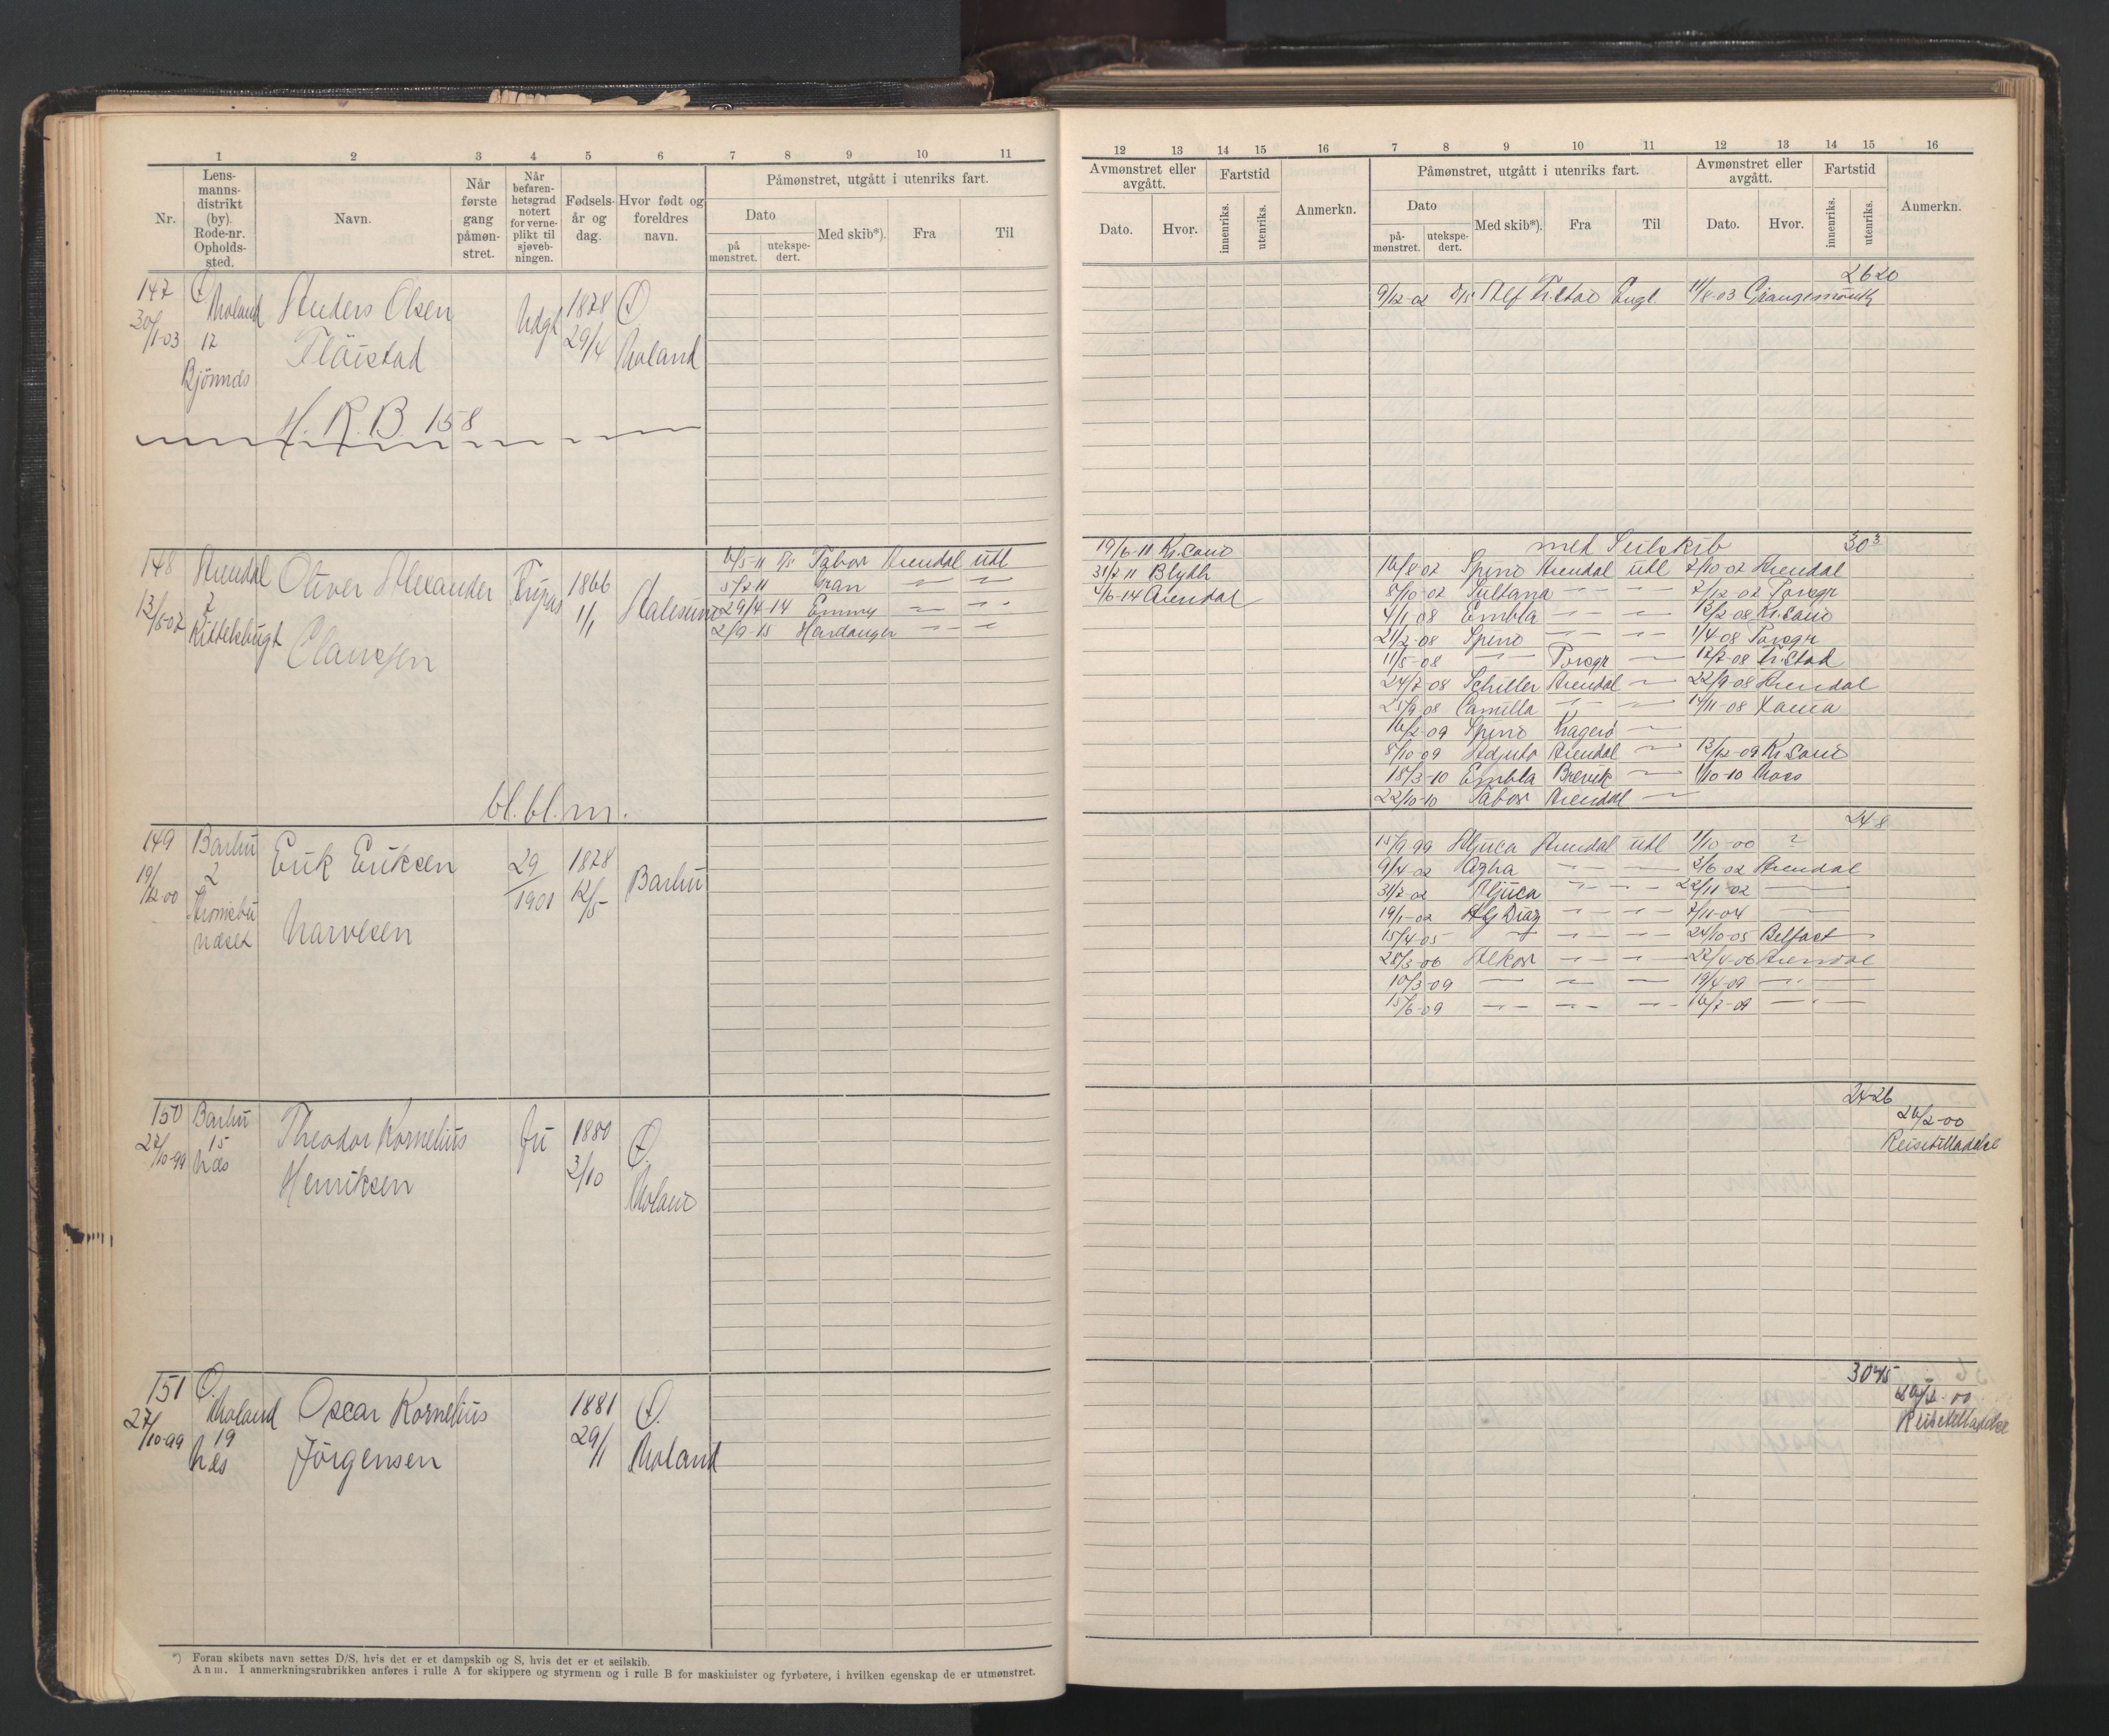 1 2 3 4 5 6 7 8 9 10 11
Nr.
Lens-
manns-
distrikt
(by).
Rode-nr.
Opholds-
sted.
Navn.
Når
første
gang
påmøn-
stret.
Når
befaren-
hetsgrad
notert
for verne-
plikt til
sjøveb-
ningen.
Fødsels-
år og
dag.
Hvor født og
foreldres
navn.
Påmønstret, utgått i utenriks fart.
Dato
på
mønstret.
utekspe-
dert.
Med skib*).
Fra
Til
147
30/1-03
Ø
Moland
12
Bjönnds
Anders Olsen
Flöistad
H. R. B. 158
Udgt
1878
29/4
Ø
Moland
148
13/5-07
Arendal
7
Kittelsbugt
Oliver Alexander
Clausen
1866
1/1
bl. bl. m.
16/5-11 D/S Tabor Arendal utl
5/7-11 Gran — —
29/4-14 Emmy — —
2/9-15 Hardanger — —
149
19/12-00
Barbu
2
Erik Eriksen
Narvesen
29/1901
1878
12/5
Barbu
150
27/10-99
Barbu
15
Næs
Theodor Kornelius
Henriksen
fu
1880
3/10
Ø.
Moland
151
27/10-99
Ø.
Moland
19
Næs
Oscar Kornelius
Jörgensen
1881
29/1
Ø.
Moland
*) Foran skibets navn settes D/S, hvis det er et dampskib og S, hvis det er et seilskib.
Anm. I anmerkningsrubrikken anføres i rulle A for skippere og styrmenn og i rulle B for maskinister og fyrbøtere, i hvilken egenskap de er utmønstret.
12 13 14 15 16 7 8 9 10 11 12 13 14 15 16
Avmønstret eller
avgått.
Dato.
Hvor.
Fartstid
innenriks.
utenriks.
Anmerkn.
Påmønstret, utgått i utenriks fart.
Dato
på-
mønstret.
utekspe-
dert.
Med skib*).
Fra
Til
Avmønstret eller
avgått.
Dato.
Hvor.
Fartstid
innenriks.
utenriks.
Anmerkn.
2620
9/12-02 D/S Alf Engl. 11/8-03 Grangemouth
19/6-11 Kr.sand
31/7-11 Blyth
4/6-14 Arendal
med Seilskib 30³
16/8-07 Speed Arendal utl 7/10-07 Arendal
8/10-07 Sultana — — 7/12-07 Porsgr
4/1-08 Embla — — 12/2-08 Kr.sand
21/2-08 Speed — — 1/4-08 Porsgr
11/5-08 — Porsgr — 17/7-08 Fr.stad
24/7-08 Schiller Arendal — 22/9-08 Arendal
25/9-08 Camilla — — 14/11-08
16/2-09 Speed Kragerø —
8/10-09 Adjuto Arendal — 12/12-09 Kr.sand
18/3-10 Embla Brevik — 1/10-10 Moss
22/10-10 Tabor Arendal —
248
15/9-99 Aljuca Arendal utl 1/10-00 ?
9/4-02 Agha — — 3/6-02 Arendal
31/7-02 Aljuca — — 22/11-02 —
19/1-02 — — 7/11-04 —
15/4-05 — — — 24/10-05 Belfast
28/3-06 Alkor — — 27/4-06 Arendal
10/3-09 — — — 19/4-09 —
15/6-09 — — — 16/7-09 —
2426
26/2-00
Reisetilladelse
3045
26/2-00
Reisetilladelse